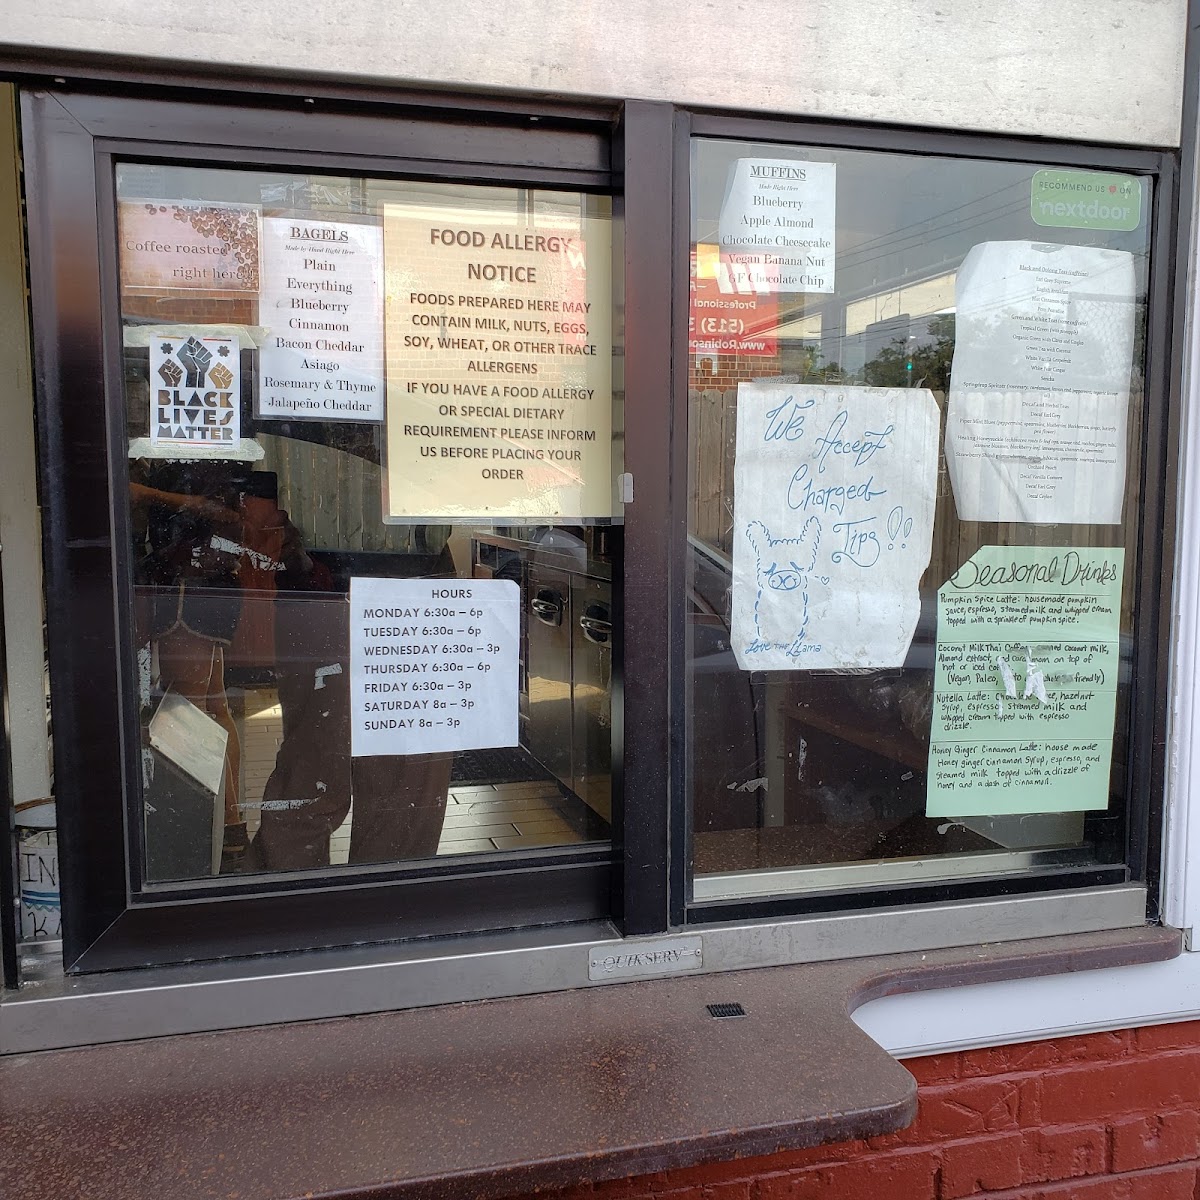 Coffee roasted
right here
BLACK
LIVES
MATTER
BAGELS
Made by Hand Right Here
Plain
Everything
Blueberry
Cinnamon
Bacon Cheddar
Asiago
Rosemary & Thyme
Jalapeño Cheddar
FOOD ALLERGY
NOTICE
FOODS PREPARED HERE MAY
CONTAIN MILK, NUTS, EGGS,
SOY, WHEAT, OR OTHER TRACE
ALLERGENS
IF YOU HAVE A FOOD ALLERGY
OR SPECIAL DIETARY
REQUIREMENT PLEASE INFORM
US BEFORE PLACING YOUR
ORDER
HOURS
MONDAY 6:30a – 6p
TUESDAY 6:30a – 6p
WEDNESDAY 6:30a – 3p
THURSDAY 6:30a – 6p
FRIDAY 6:30a – 3p
SATURDAY 8a – 3p
SUNDAY 8a – 3p
MUFFINS
Made Right Here
Blueberry
Apple Almond
Chocolate Cheesecake
Vegan Banana Nut
GF Chocolate Chip
Professional
(513)
www.Robinson
We
Accept
Charged
Tips!!
Love the Llama
RECOMMEND US ON
nextdoor
Black and Oolong Teas (caffeine)
Earl Grey Supreme
English Breakfast
Green Tea with Coconut
White Vanilla Grapefruit
Decaf and Herbal Teas
Decaf Earl Grey
Orchard Peach
Decaf Earl Grey
Decaf Ceylon
Seasonal Drinks
Pumpkin Spice Latte: housemade pumpkin
sauce, espresso, steamed milk and whipped cream
topped with a sprinkle of pumpkin spice.
Coconut Milk Thai Coffee: canned coconut milk,
Almond extract, and cardamom on top of
hot or iced
(Vegan, Paleo, friendly)
Nutella Latte: hazelnut
syrup, espresso, steamed milk and
whipped cream topped with espresso
drizzle.
Honey Ginger Cinnamon Latte: house made
Honey ginger cinnamon syrup, espresso, and
steamed milk topped with a drizzle of
honey and a dash of cinnamon.
QUIKSERV
IN
K